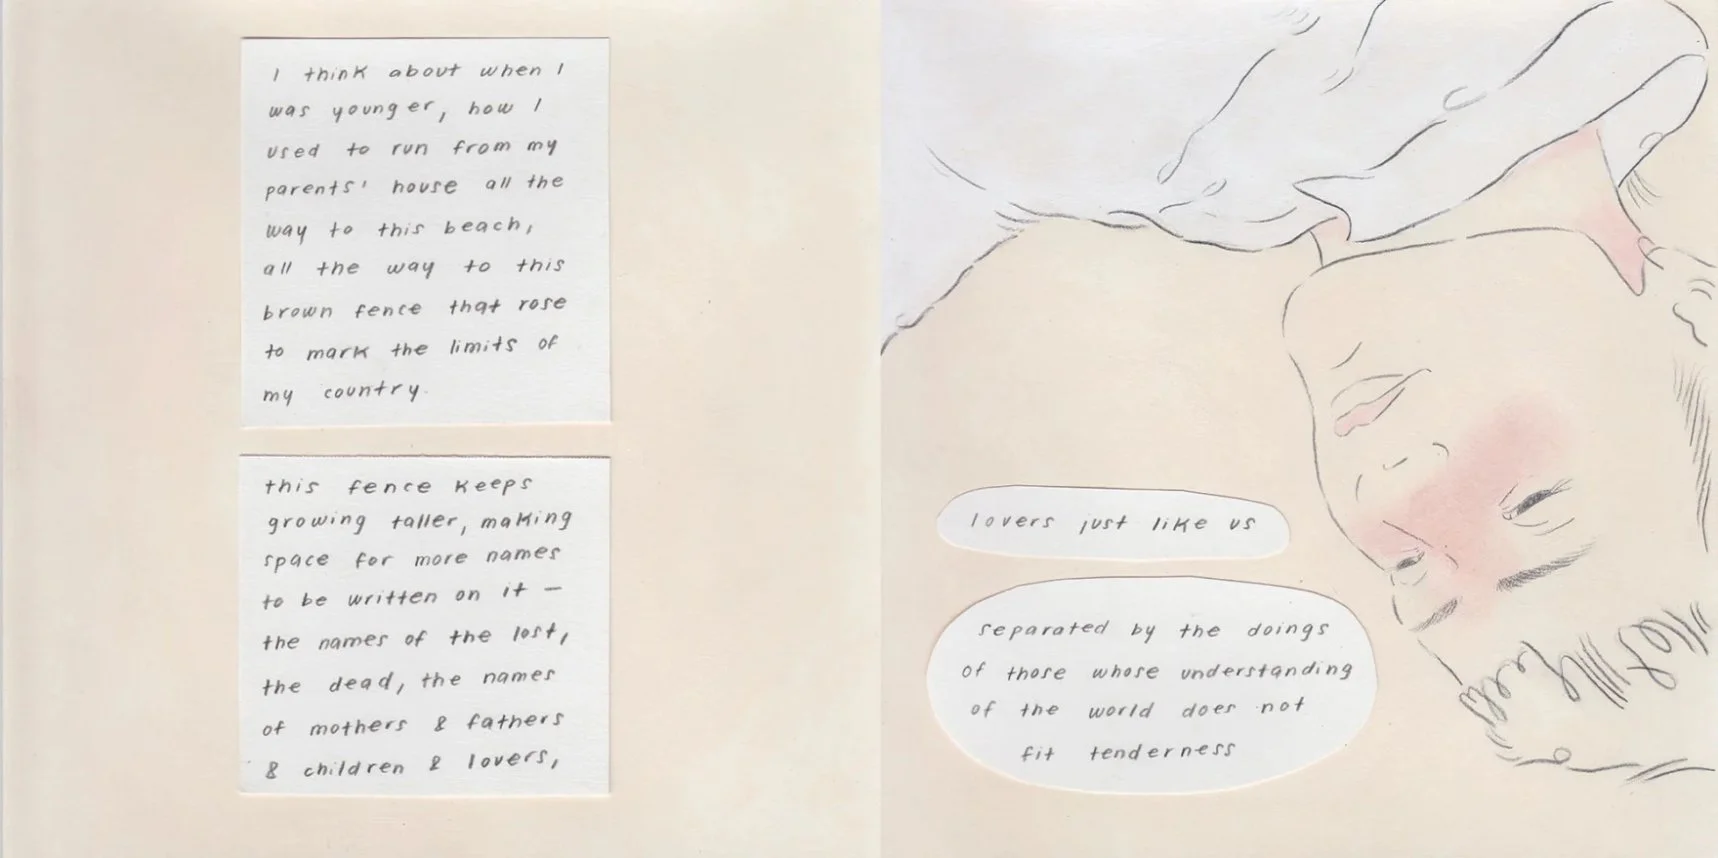 I think about when I
was younger, how I
used to run from my
parents' house all the
way to this beach,
all the way to this
brown fence that rose
to mark the limits of
my country.
this fence keeps
growing taller, making
space for more names
to be written on it —
the names of the lost,
the dead, the names
of mothers & fathers
& children & lovers,
lovers just like us
separated by the doings
of those whose understanding
of the world does not
fit tenderness